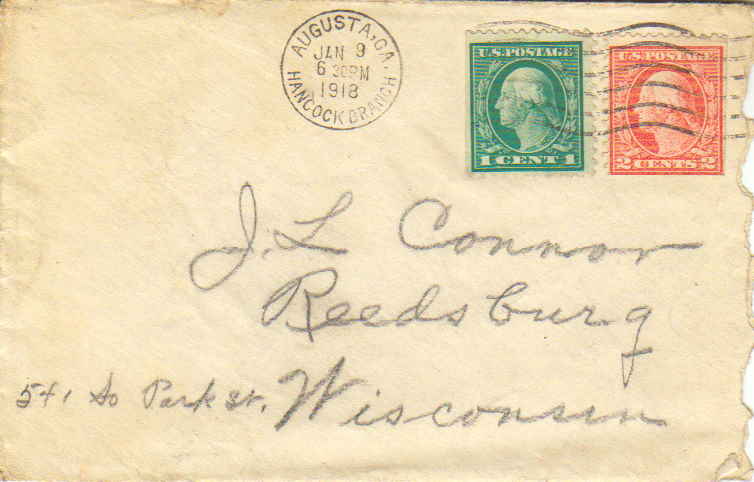 AUGUSTA, GA.
JAN 9
6 30PM
1918
HANCOCK BRANCH
U.S. POSTAGE
1 CENT 1
U.S. POSTAGE
2 CENTS 2
J. L Connor
Reedsburg
541 So Park St. Wisconsin